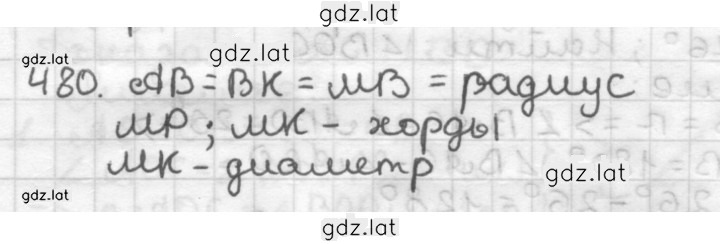 gdz.lat
gdz.lat
gdz.lat
480. AB = BK = MB = радиус
MP; MK - хорды
MK - диаметр
gdz.lat
gdz.lat
gdz.lat